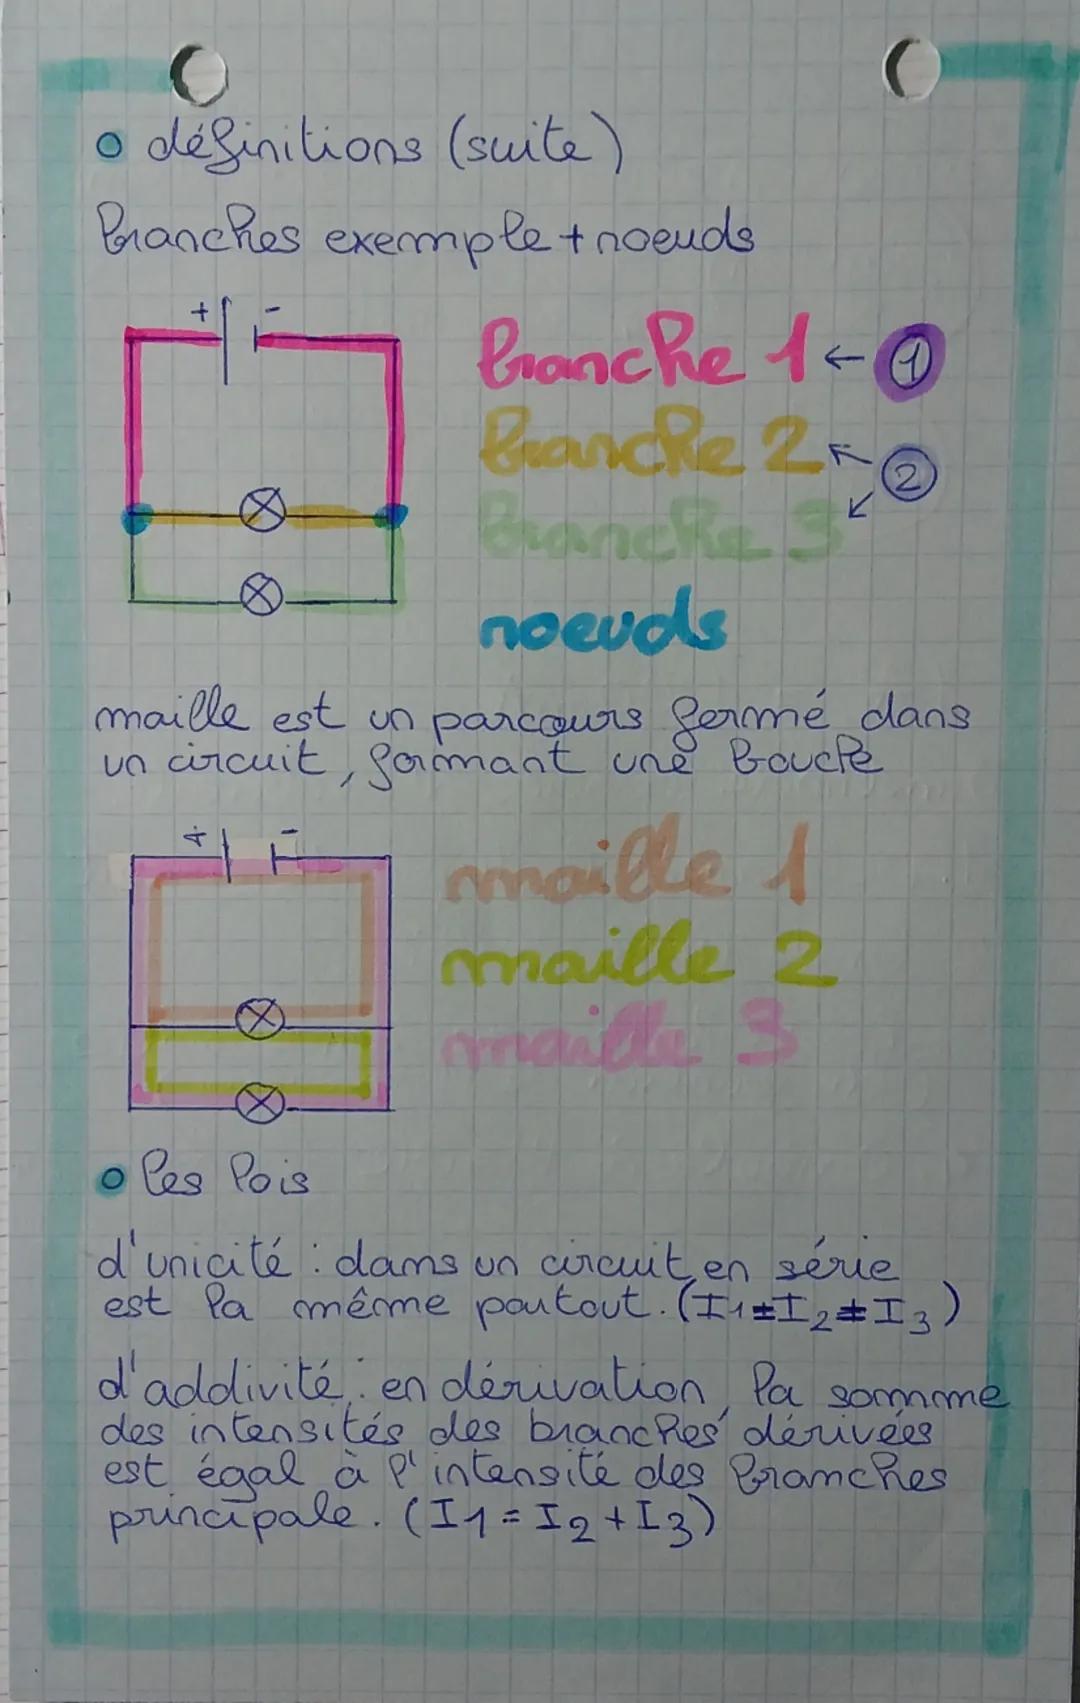 définitions (suite)
branches exemple + noeuds
+ -
branche 1 ← 1
branche 2 ↖ 2
branche 3 ↙
noeuds
maille est un parcours fermé dans
un circuit, formant une boucle
+ -
maille 1
maille 2
maille 3
les lois
d'unicité : dans un circuit en série
est la même partout. (I1 = I2 = I3)
d'addivité : en dérivation, la somme
des intensités des branches dérivées
est égal à l'intensité des branches
principale. (I1 = I2 + I3)